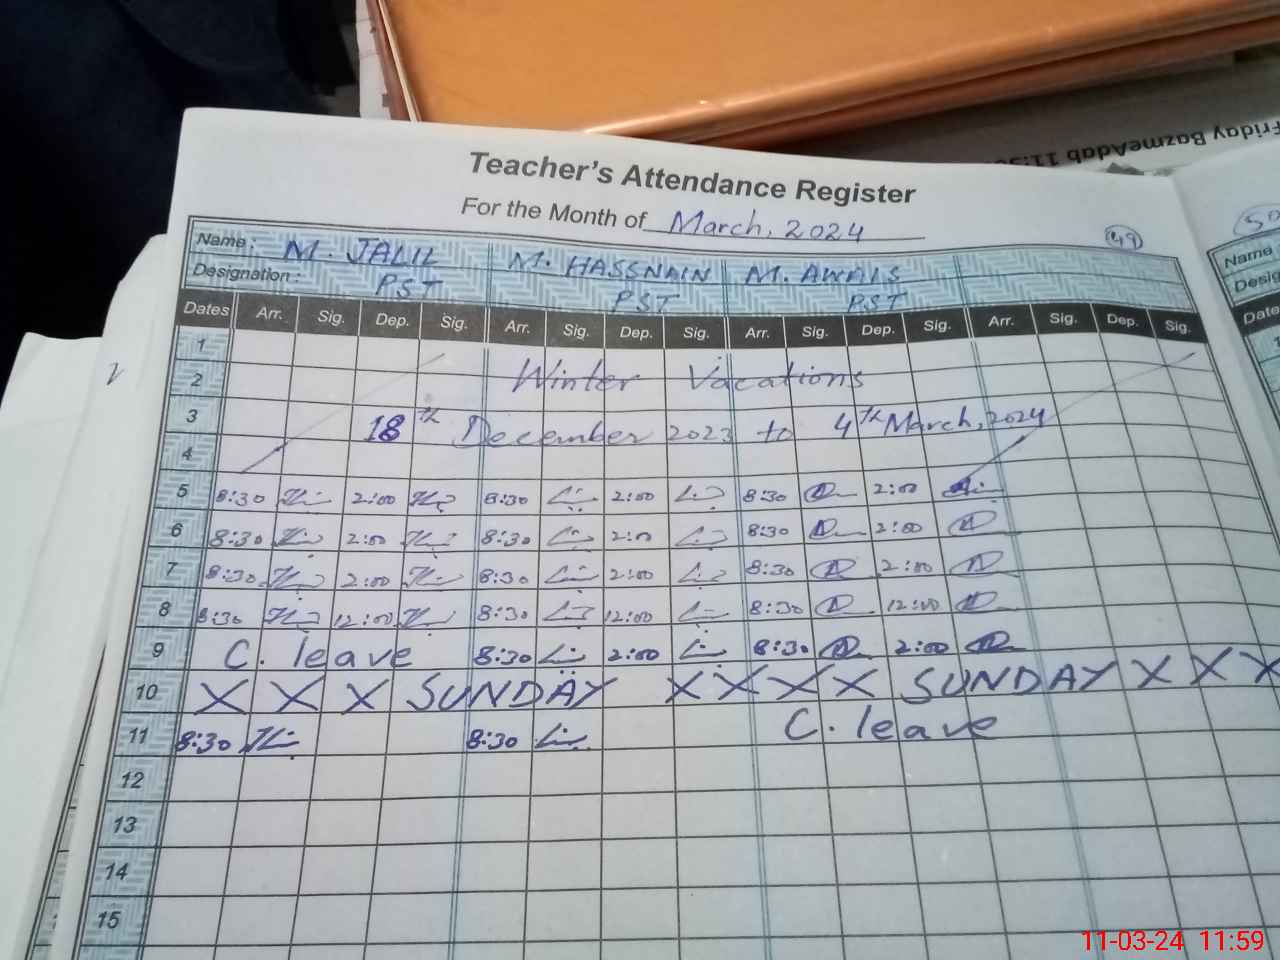 Friday BazmeAdab 11:30
Teacher's Attendance Register
For the Month of March, 2024
49
Name : M. JALIL M. HASSNAIN M. AWAIS
Designation : PST PST PST
Dates Arr. Sig. Dep. Sig. Arr. Sig. Dep. Sig. Arr. Sig. Dep. Sig. Arr. Sig. Dep. Sig.
1
2 Winter Vacations
3 18th December 2023 to 4th March, 2024
4
5 8:30 2:00 8:30 2:00 8:30 2:00
6 8:30 2:00 8:30 2:00 8:30 2:00
7 8:30 2:00 8:30 2:00 8:30 2:00
8 8:30 12:00 8:30 12:00 8:30 12:00
9 C. leave 8:30 2:00 8:30 2:00
10 X X X SUNDAY X X X X SUNDAY X X X
11 8:30 8:30 C. leave
12
13
14
15
Name
11-03-24 11:59